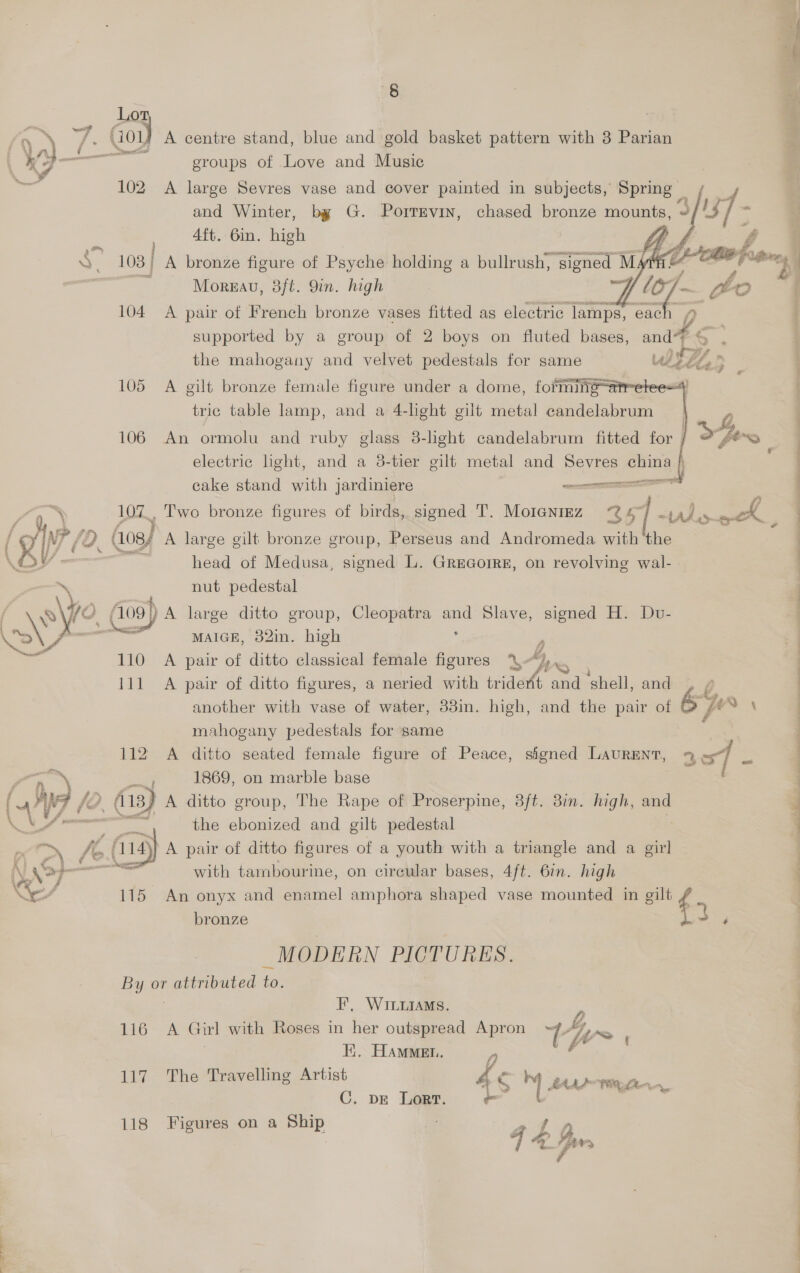 8
Lot
7. 101 A centre stand, blue and gold basket pattern with 3 Parian
groups of Love and Music
102 A large Sevres vase and cover painted in subjects, Spring
and Winter, by G. Portevin, chased bronze mounts,
4ft. 6in. high
103 A bronze figure of Psyche holding a bullrush, signed
Moreau, 3ft. 9in. high
104 A pair of French bronze vases fitted as electric lamps, each
supported by a group of 2 boys on fluted bases, and
the mahogany and velvet pedestals for same
105 A gilt bronze female figure under a dome, forming an elec-
tric table lamp, and a 4-light gilt metal candelabrum
106 An ormolu and ruby glass 3-light candelabrum fitted for
electric light, and a 3-tier gilt metal and Sevres china
cake stand with jardiniere
107 Two bronze figures of birds, signed T. Moigniez
108 A large gilt bronze group, Perseus and Andromeda with the
head of Medusa, signed L. Gregoire, on revolving wal-
nut pedestal
109 A large ditto group, Cleopatra and Slave, signed H. Du-
maige, 32in. high
110 A pair of ditto classical female figures
111 A pair of ditto figures, a neried with trident and shell, and
another with vase of water, 33in. high, and the pair of
mahogany pedestals for same
112 A ditto seated female figure of Peace, signed Laurent,
1869, on marble base
113 A ditto group, The Rape of Proserpine, 3ft. 3in. high, and
the ebonized and gilt pedestal
114 A pair of ditto figures of a youth with a triangle and a girl
with tambourine, on circular bases, 4ft. 6in. high
115 An onyx and enamel amphora shaped vase mounted in gilt
bronze
MODERN PICTURES.
By or attributed to.
F. Williams.
116 A Girl with Roses in her outspread Apron
E. Hammel.
117 The Travelling Artist
C. de Lort.
118 Figures on a Ship